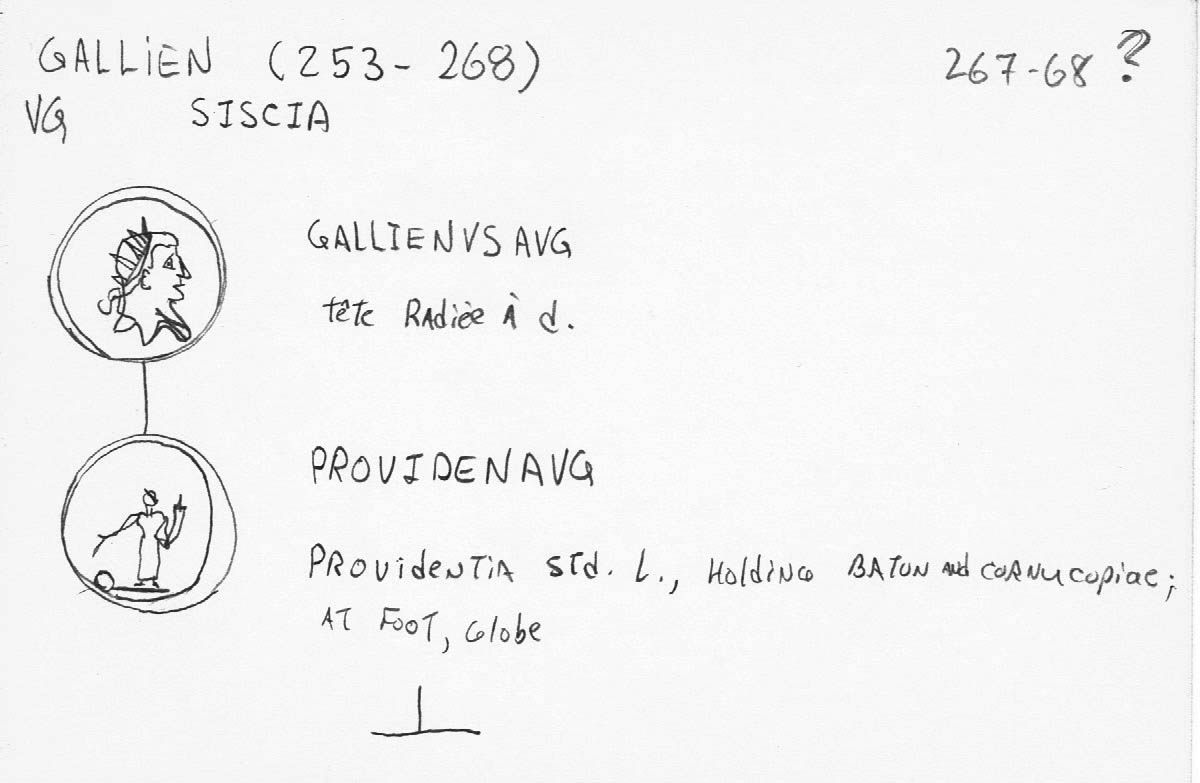 GALLiEN (253-268) 267-68 ?
VG SISCIA
GALLIENVS AVG
tête RAdiée À d.
PROVIDEN AVG
PROVidenTiA STd. L., HoldiNG BATON ANd CORNUCOpiae;
AT FOOT, Globe